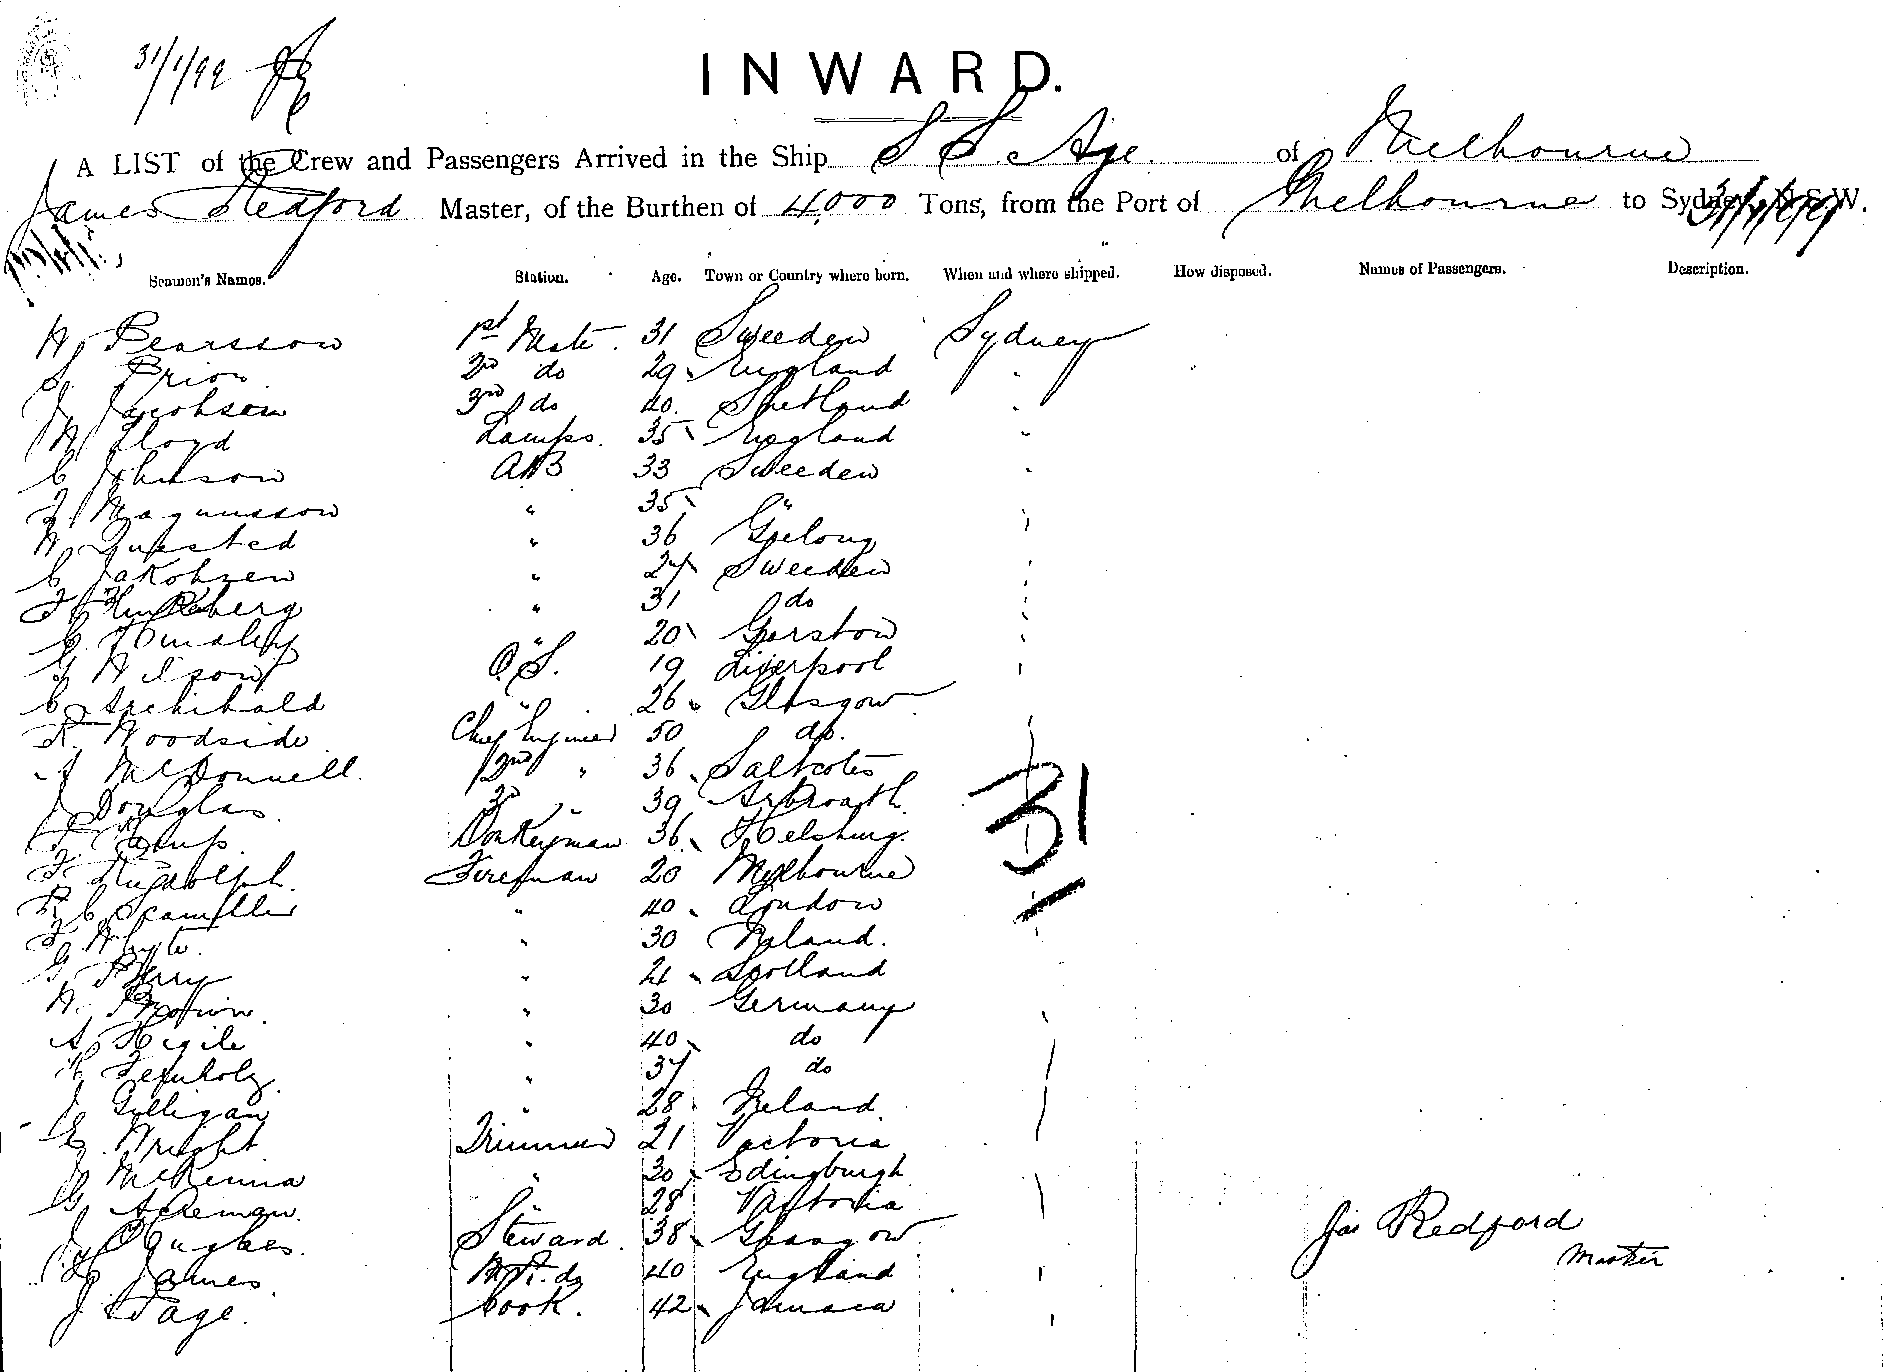 31/1/99
INWARD.
A LIST of the Crew and Passengers Arrived in the Ship S S Age of Melbourne
James Redford Master, of the Burthen of 4,000 Tons, from the Port of Melbourne to Sydney, N.S.W.
Seamen's Names. Station. Age. Town or Country where born. When and where shipped. How disposed. Names of Passengers. Description.
W Pearsson 1st Mate. 31 Sweeden Sydney
S. Prior 2nd do 29 England "
J Jacobsen 3rd do 40. Shetland "
W Lloyd Lamps. 35 England "
C Johnson AB 33 Sweeden "
F Magnusson " 35 "
W Quested " 36 Geelong
C Jakobzen " 27 Sweeden
" 31 do
" 20 Garston
G Wilson O.S. 19 Liverpool
C Archibald " 26 Glasgow
R Woodside Chief Engineer 50 do.
J McDonnell. 2nd " 36 Saltcotes
J Douglas 3rd " 39 Arbroath
Donkeyman 36
F. Rudolph. Fireman 20 Melbourne
R. C Scamiller " 40 London
F Whyte. " 30 Ireland.
G Perry " 21 Scotland
W. Brown. " 30 Germany
A Hegile " 40 do
" 37 do
J Gilligan " 28 Ireland
E. Wright Trimmer 21 Victoria
J McKenna " 30 Edingburgh
G Akeman. " 28 Victoria
J Hughes. Steward. 38 Glasgow
James. do 40 England
J Page. Cook. 42 Jamaca
31
Jas Redford
Master